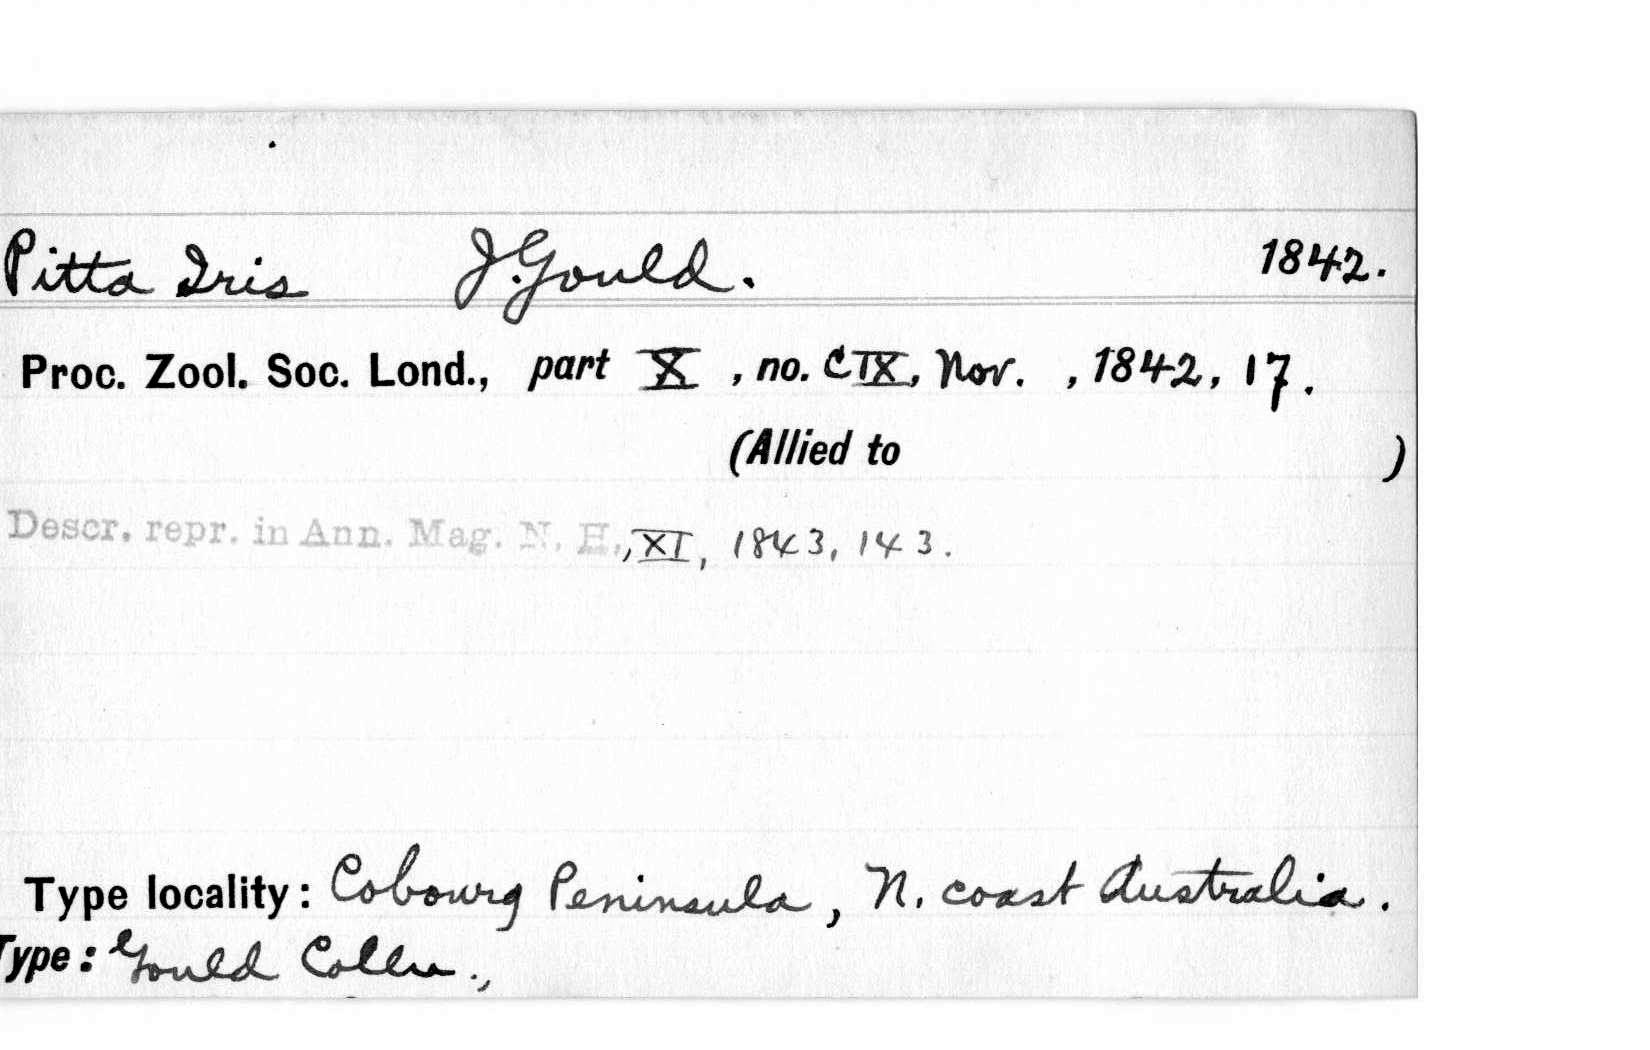 Pitta Iris J. Gould. 1842.
Proc. Zool. Soc. Lond., part X, no. CIX, Nov. , 1842, 17.
(Allied to )
Descr. repr. in Ann. Mag. N. H., XI, 1843, 143.
Type locality: Cobourg Peninsula, N. coast Australia.
Type: Gould Colln.,